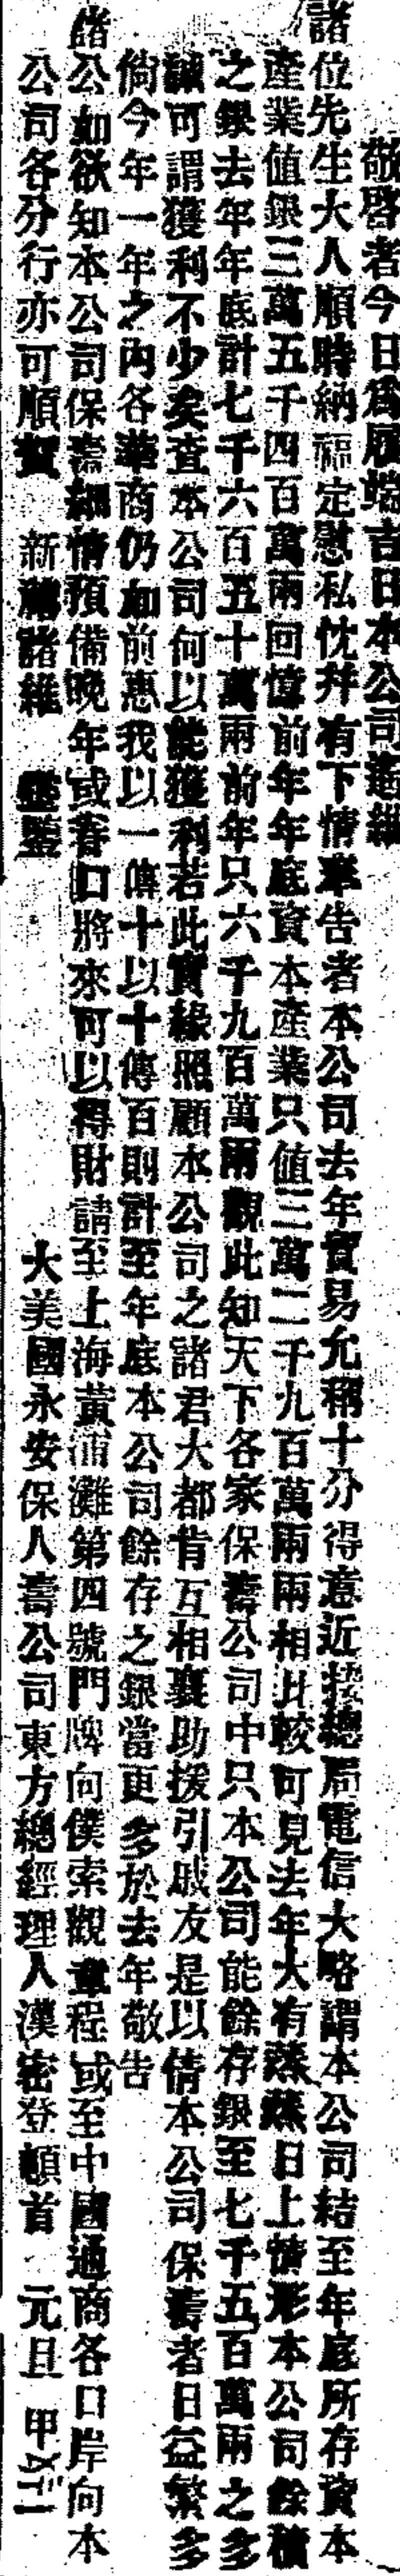 敬啓者今日爲履端吉日本公司遙維
諸位先生大人順時納福定慰私忱幷有下情奉告者本公司去年貿易允稱十分得意近接總局電信大略謂本公司結至年底所存資本
產業值銀三萬五千四百萬兩回憶前年年底資本產業只值三萬二千九百萬兩兩相比較可見去年大有蒸蒸日上情形本公司餘積
之銀去年年底計七千六百五十萬兩前年只六千九百萬兩觀此知天下各家保壽公司中只本公司能餘存銀至七千五百萬兩之多
誠可謂獲利不少矣查本公司何以能獲利若此實緣照顧本公司之諸君大都肯互相襄助援引戚友是以倩本公司保壽者日益繁多
倘今年一年之內各華商仍如前惠我以一傳十以十傳百則計至年底本公司餘存之銀當更多於去年敬告
諸公如欲知本公司保壽細情預備晚年或眷口將來可以得財請至上海黃浦灘第四號門牌向僕索觀章程或至中國通商各口岸向本
公司各分行亦可順賀 新禧諸維 鑒 大美國永安保人壽公司東方總經理人漢密登頓首 元旦 甲